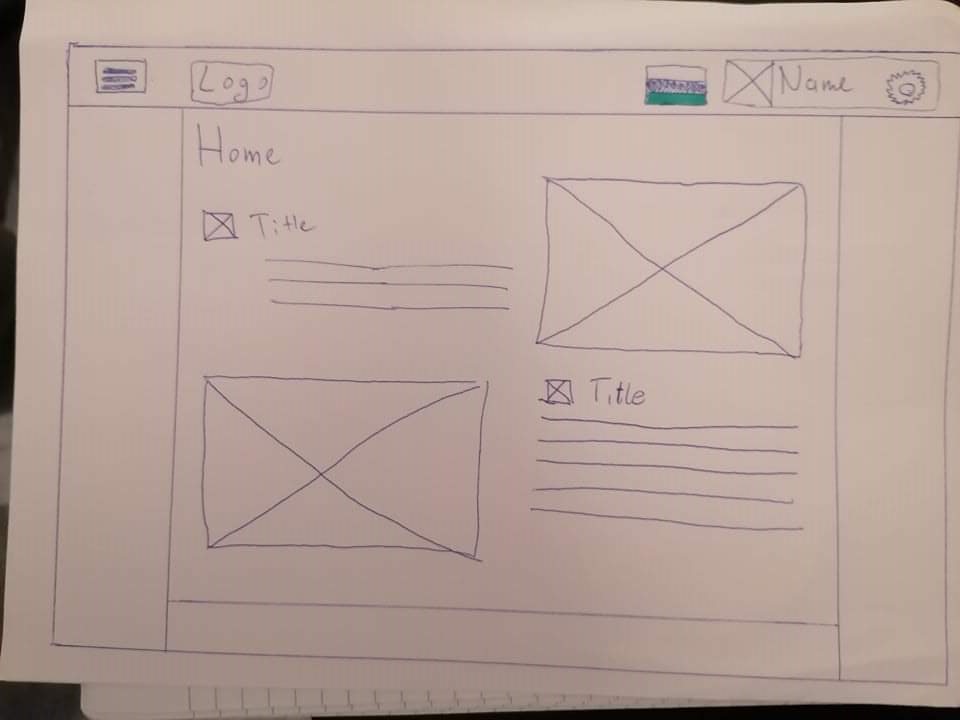 Logo
Name
Home
Title
Title